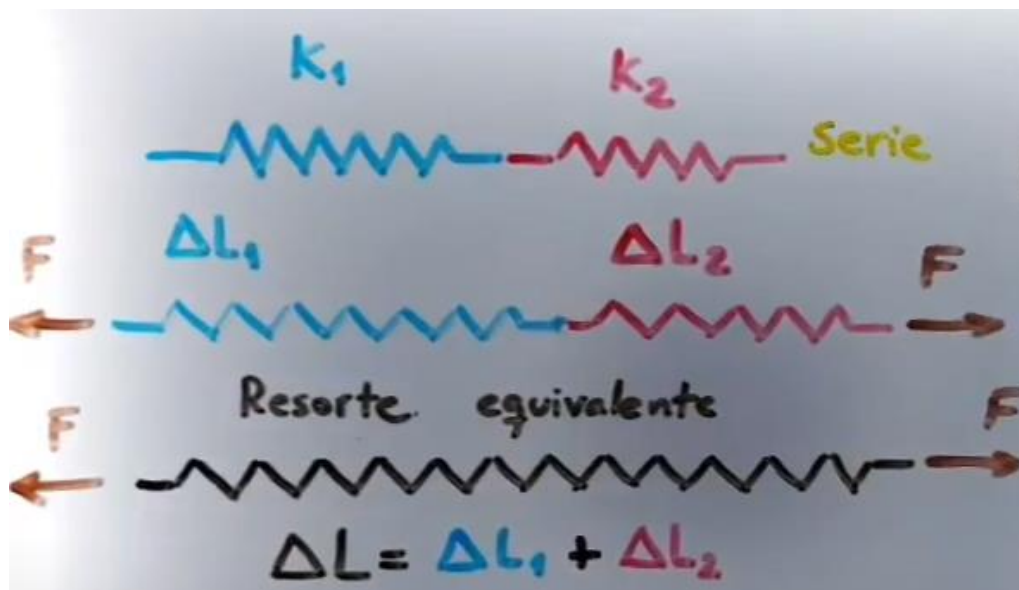 K₁ K₂
Serie
ΔL₁ ΔL₂
F F
Resorte equivalente
F F
ΔL = ΔL₁ + ΔL₂